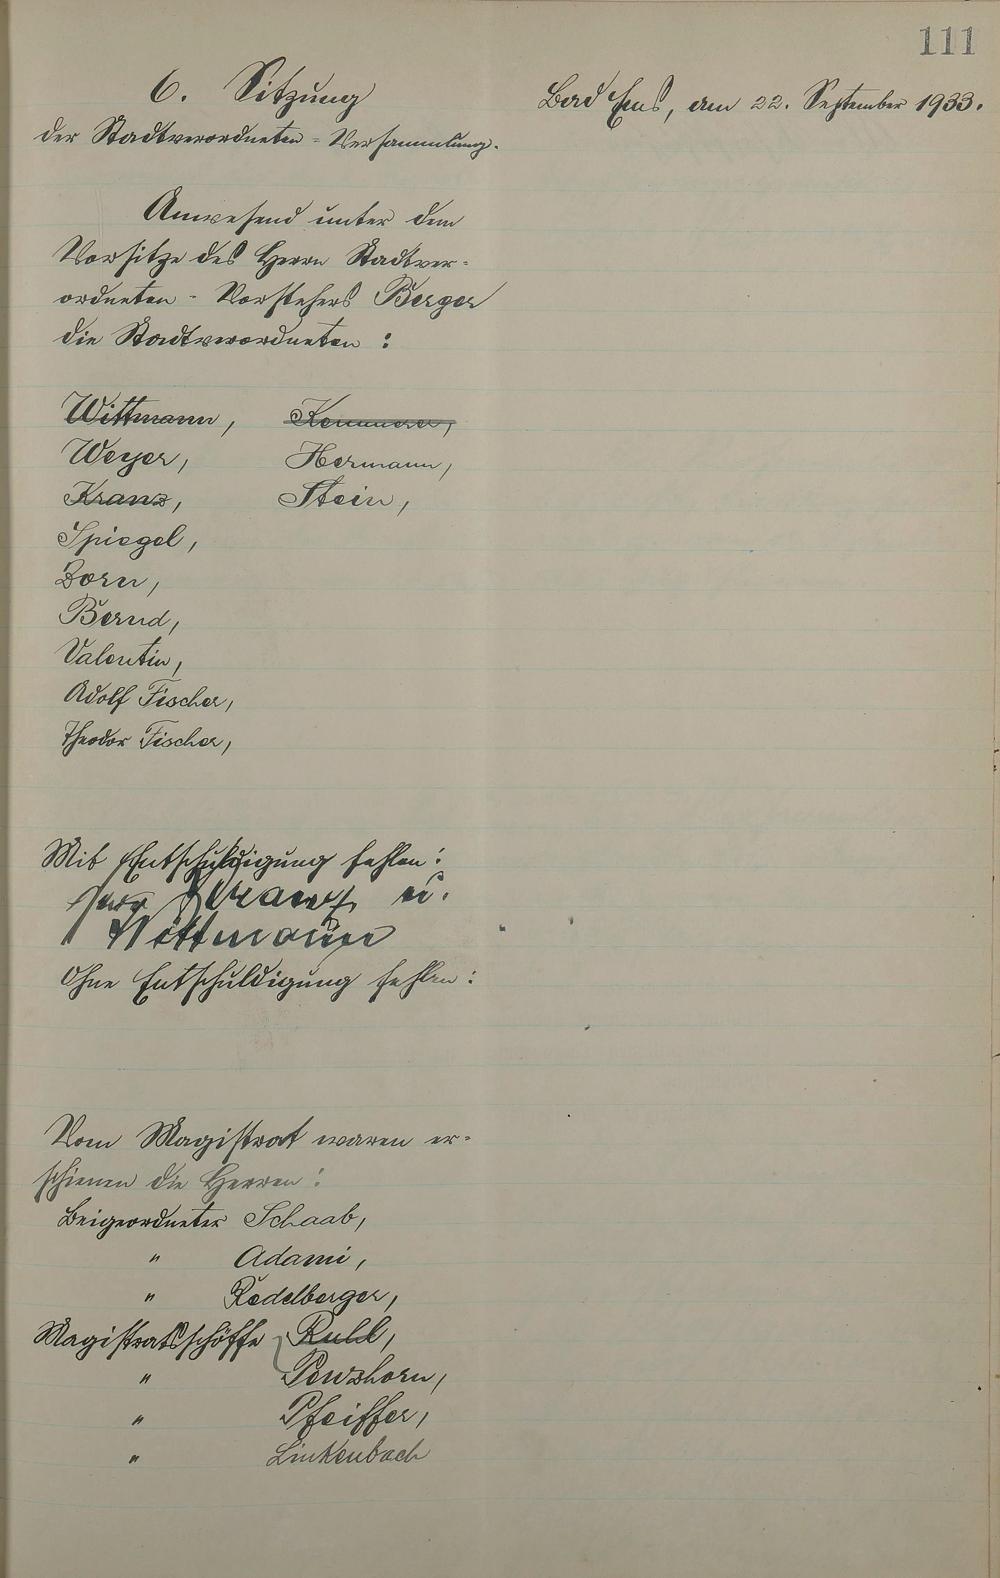 111
6. Sitzung
der Stadtverordneten-Versammlung.
Bad Ems, am 22. September 1933.
Anwesend unter dem
Vorsitze des Herrn Stadtver-
ordneten-Vorstehers Berger
die Stadtverordneten:
Wittmann, Kemmerer,
Weyer, Hermann,
Kranz, Stein,
Spiegel,
Born,
Bernd,
Valentin,
Adolf Fischer,
Theodor Fischer,
Mit Entschuldigung fehlen:
u.
Wittmann
Ohne Entschuldigung fehlen:
Vom Magistrat waren er-
schienen die Herren:
Beigeordneter Schaab,
" Adami,
" Redelberger,
Magistratsschöffe Ruhl,
" Penzhorn,
" Pfeiffer,
" Linkenbach